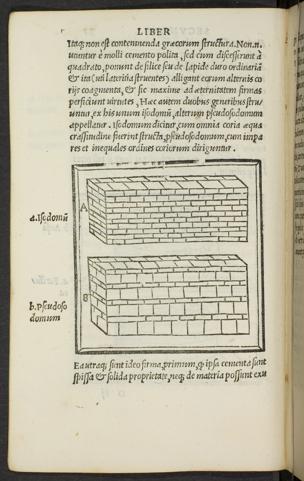 LIBER
Itaq; non est contemnenda græcorum structura. Non.n.
utuntur è molli cemento polita, sed cum discesserunt à
quadrato, ponunt de silice seu de lapide duro ordinaria
& ita (uti lateritia struentes) alligant eorum alternis co
rijs coagmenta, & sic maxime ad æternitatem firmas
perficiunt uirtutes, Hæc autem duobus generibus stru/
untur, ex his unum isodomũ, alterum pseudisodomum
appellatur. Isodomum dicitur, cum omnia coria æqua
crassitudine fuerint structa, pseudisodomum, cum impa
res et inequales ordines coriorum diriguntur.
a. Isodomũ
A
B
b. Pseudoso
domum
Ea utraq; sunt ideo firma, primum, q ipsa cementa sunt
spissa & solida proprietate, neq; de materia possunt exu